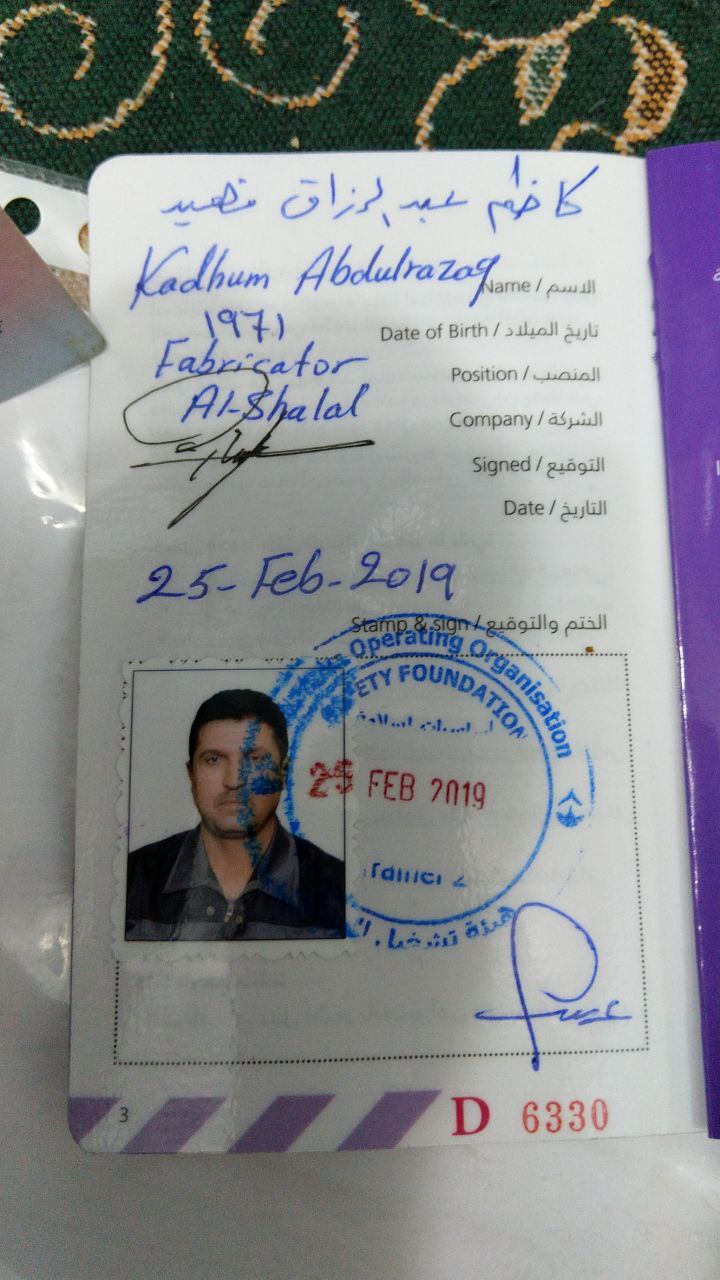 كاظم عبد الرزاق
Kadhum Abdulrazaq Name / الاسم
1971 Date of Birth / تاريخ الميلاد
Fabricator Position / المنصب
Al-Shalal Company / الشركة
Signed / التوقيع
Date / التاريخ
25-Feb-2019
Stamp & sign / الختم والتوقيع
Operating Organisation
ETY FOUNDATION
25 FEB 2019
هيئة تشغيل
3 D 6330